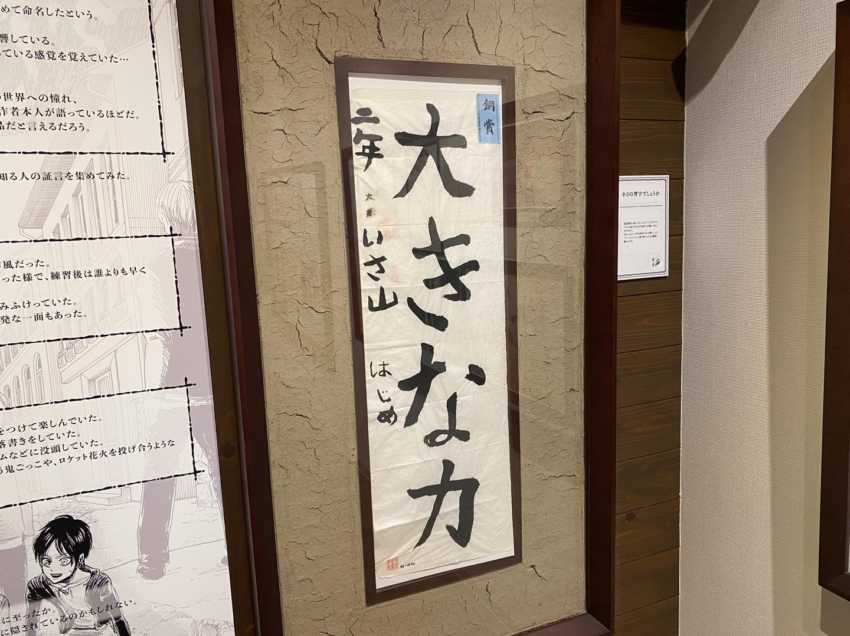 めて命名したという。
響している。
っている感覚を覚えていた…
世界への憧れ、
作者本人が語っているほどだ。
品だと言えるだろう。
知る人の証言を集めてみた。
風だった。
った様で、練習後は誰よりも早く
みふけっていた。
発な一面もあった。
をつけて楽しんでいた。
落書きをしていた。
ムなどに没頭していた。
鬼ごっこや、ロケット花火を投げ合うような
に至ったか。
に隠されているのかもしれない。
銅賞
大きな力
二年
いさ山 はじめ
小2の習字でしょうか